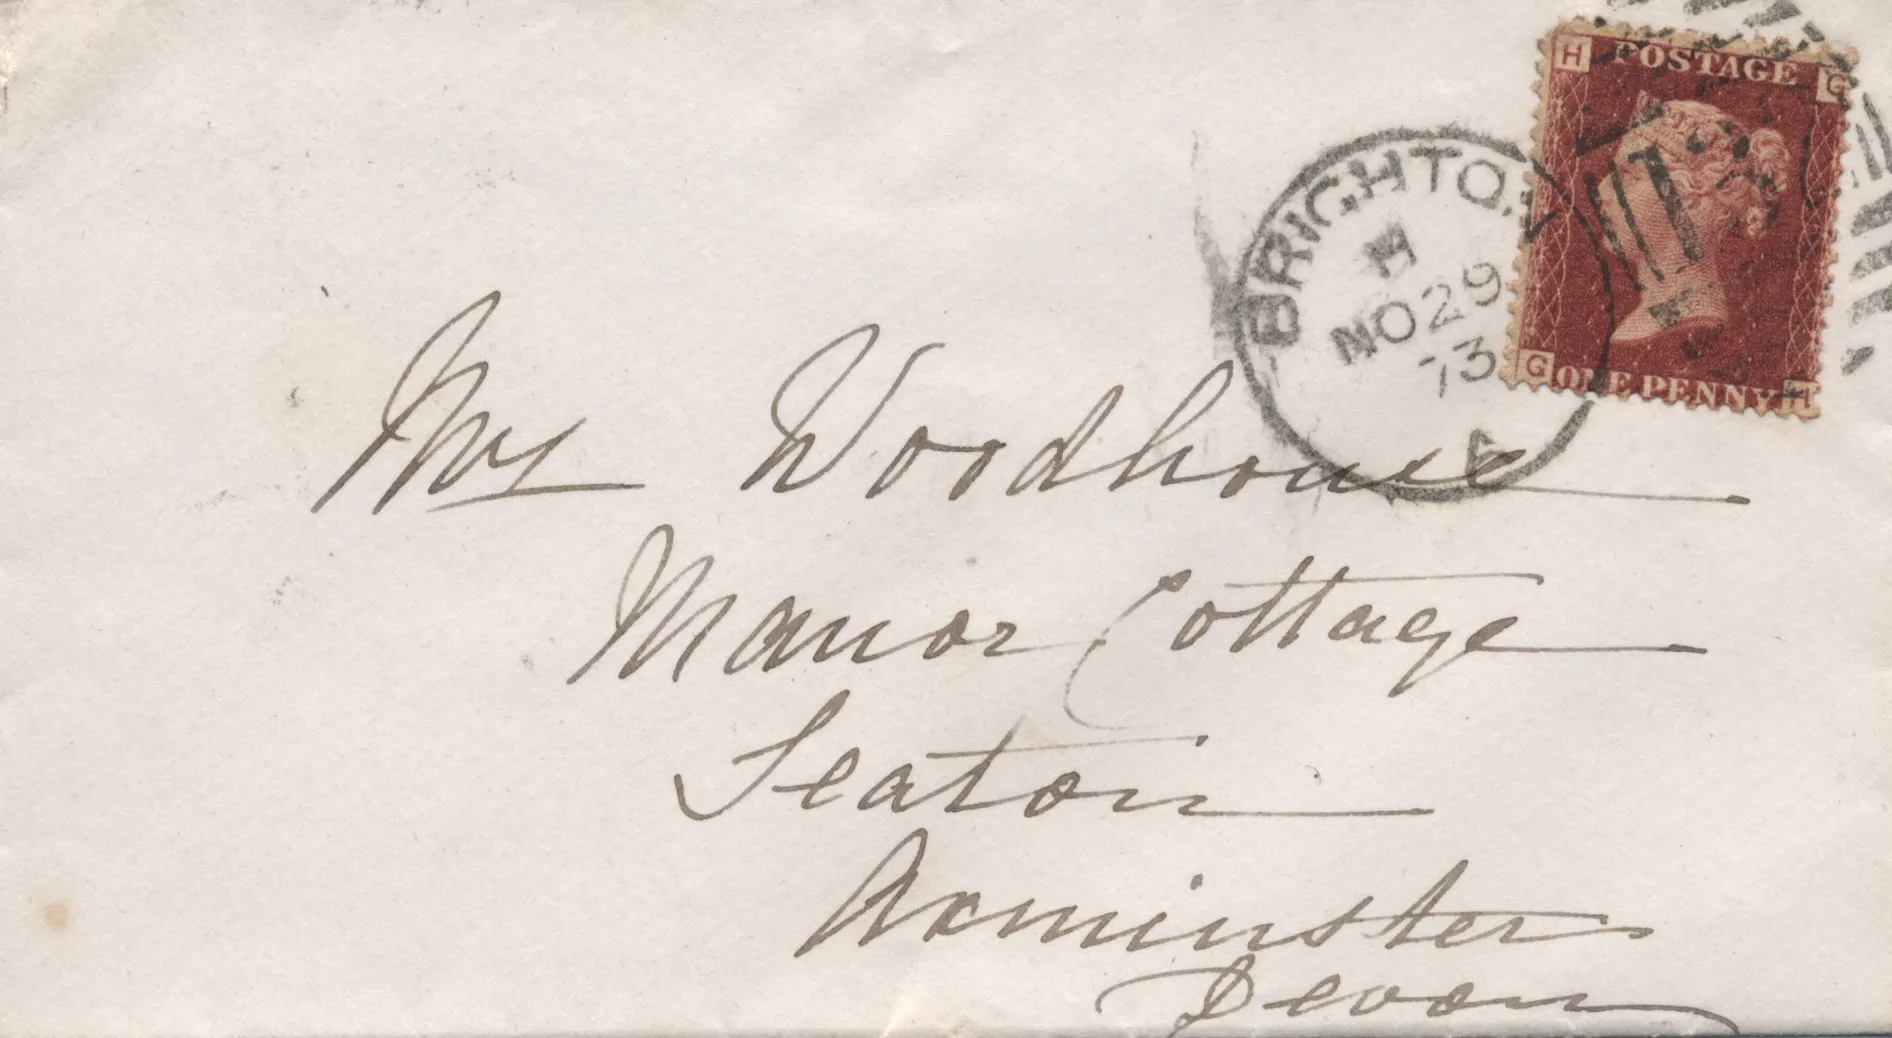 H POSTAGE G
G ONE PENNY H
BRIGHTON
H
NO 29
73
A
Mrs Woodhouse
Manor Cottage
Seaton
Axminster
Devon